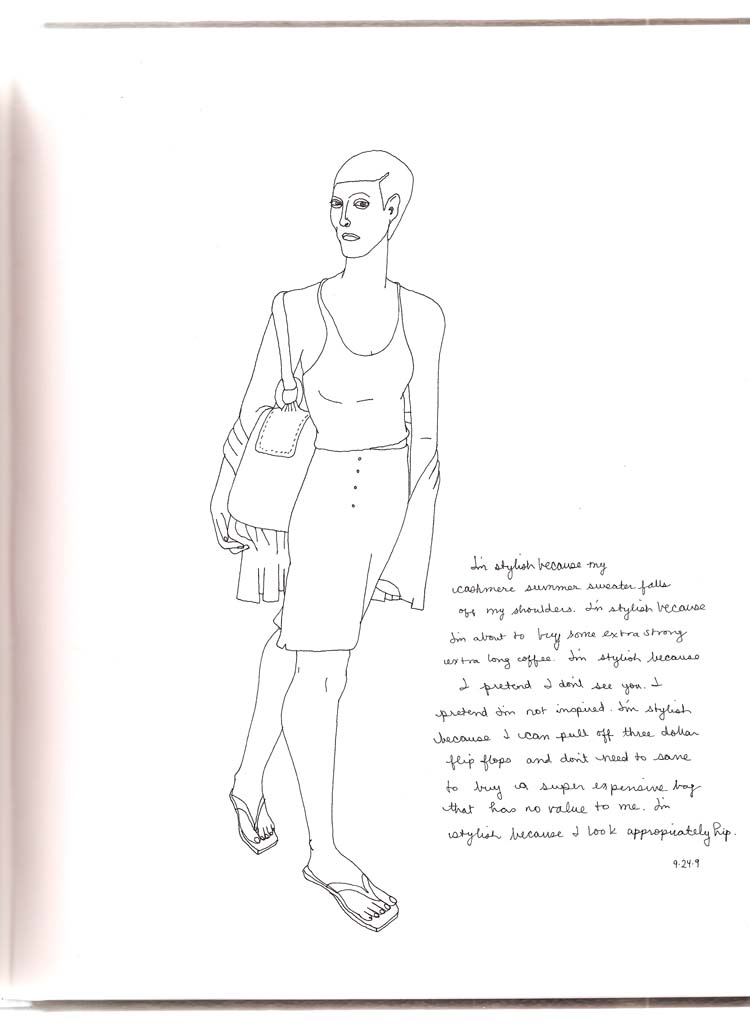 I'm stylish because my
cashmere summer sweater falls
off my shoulders. I'm stylish because
I'm about to buy some extra strong
extra long coffee. I'm stylish because
I pretend I don't see you. I
pretend I'm not inspired. I'm stylish
because I can pull off three dollar
flip flops and don't need to save
to buy a super expensive bag
that has no value to me. I'm
stylish because I look appropriately hip.
9.24.9